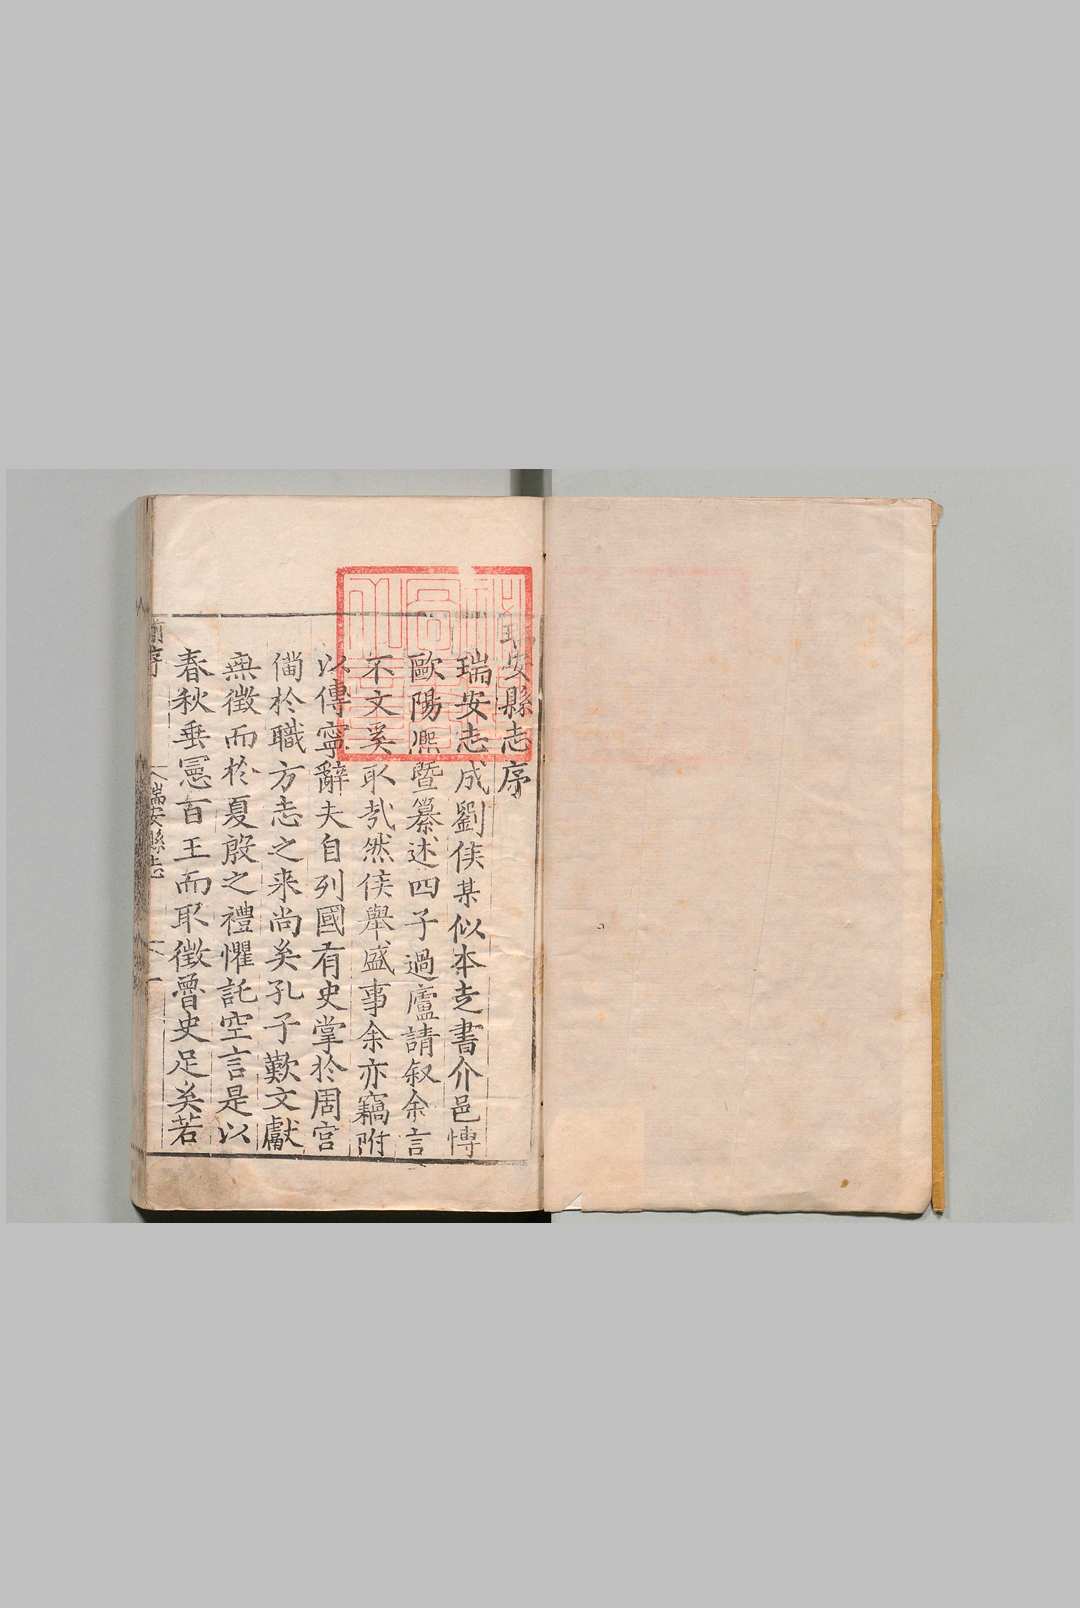 瑞安縣志序
瑞安志成劉侯某似本㐫書介邑博
歐陽熙暨纂述四子過廬請叙余言
不文奚取㢤然侯舉盛事余亦竊附
以傳寧辭夫自列國有史掌於周官
備於職方志之來尚矣孔子歎文獻
無徵而於夏殷之禮懼託空言是以
春秋垂憲百王而取徵魯史足矣若
前序
瑞安縣志
一